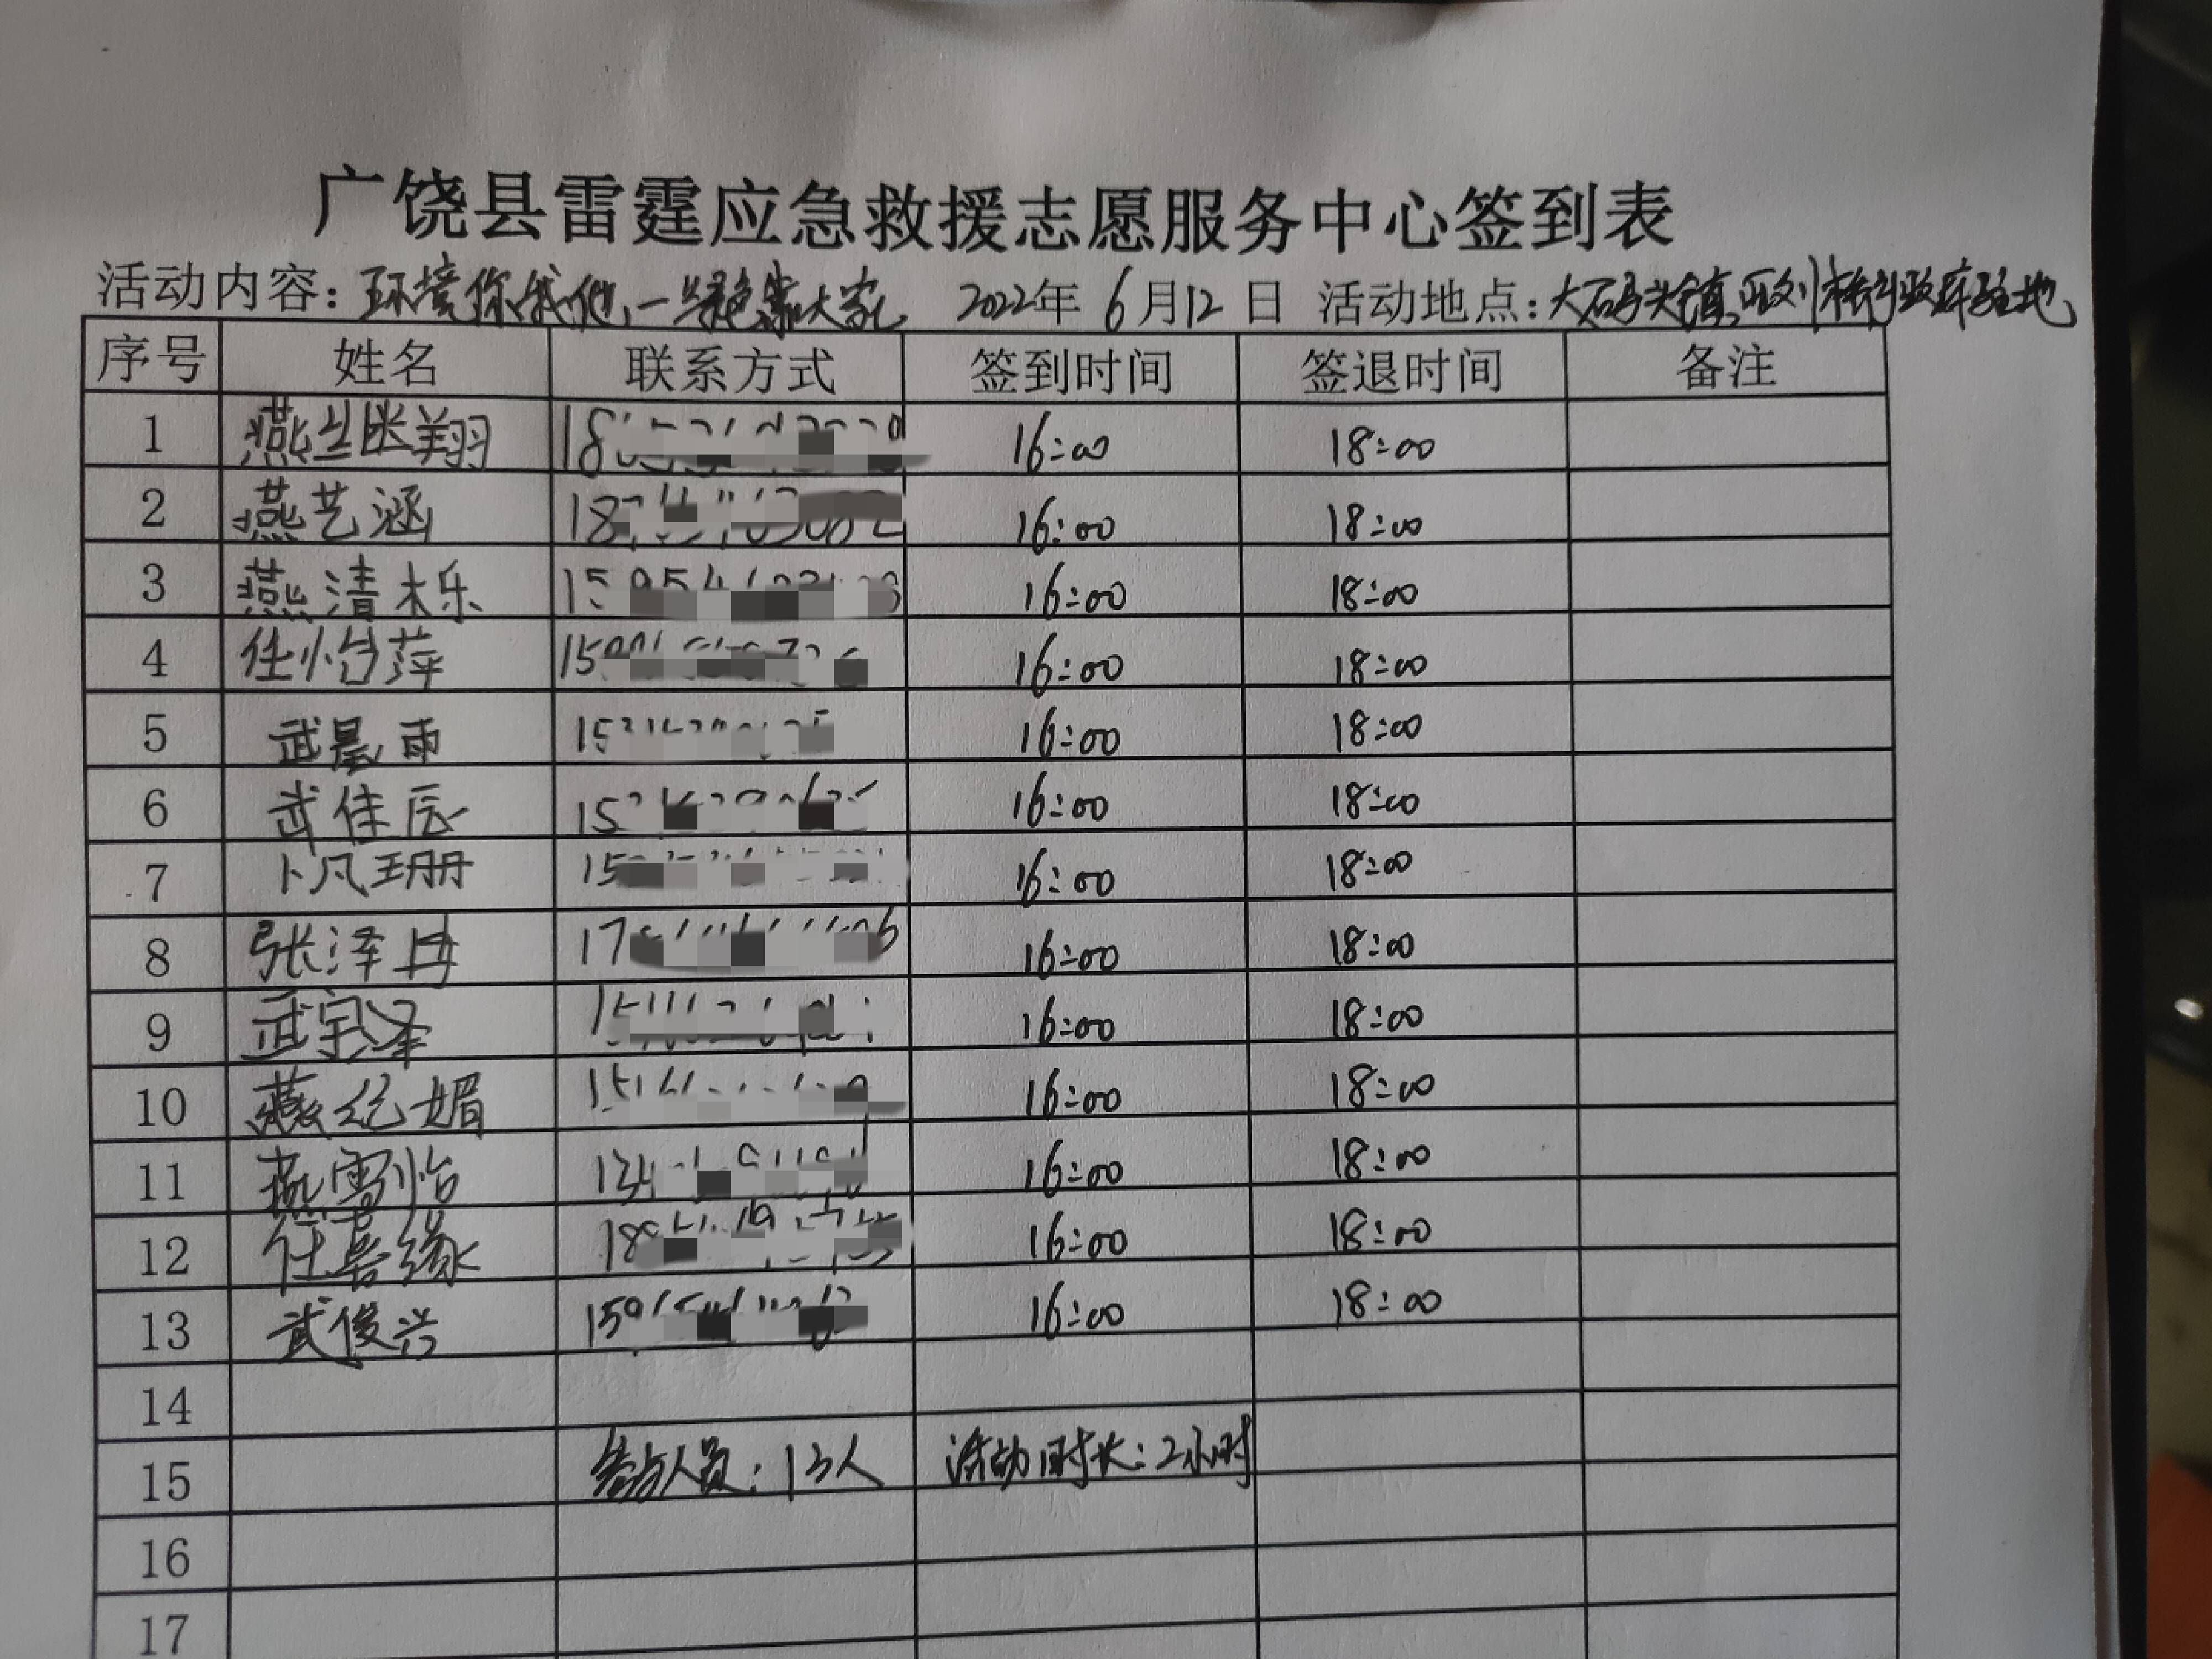 广饶县雷霆应急救援志愿服务中心签到表
活动内容：环境你我他，一抹绿色靠大家 2022年 6月12日 活动地点：大码头镇西刘桥
序号 姓名 联系方式 签到时间 签退时间 备注
1 燕 翔 18 16:00 18:00
2 燕艺涵 18 16:00 18:00
3 燕清栎 15 16:00 18:00
4 任怡萍 15 16:00 18:00
5 武晨雨 15 16:00 18:00
6 武佳辰 15 16:00 18:00
7 卜凡珊 15 16:00 18:00
8 张泽冉 17 16:00 18:00
9 武宇泽 15 16:00 18:00
10 燕纥媚 15 16:00 18:00
11 燕雪怡 134 16:00 18:00
12 任喜缘 18 16:00 18:00
13 武俊兴 15 16:00 18:00
14
15 参与人员：13人 活动时长：2小时
16
17